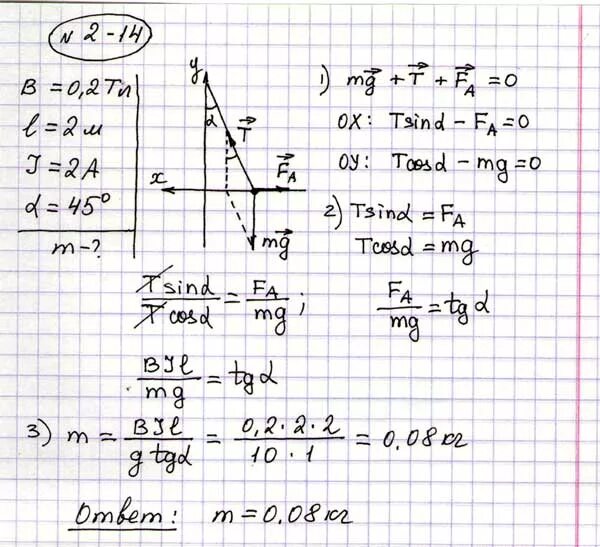 № 2-14
B = 0,2 Тл
l = 2 м
I = 2 А
α = 45°
m - ?
y
α
T⃗
F⃗_A
x
mg⃗
1) mg⃗ + T⃗ + F⃗_A = 0
OX: Tsinα - F_A = 0
OY: Tcosα - mg = 0
2) Tsinα = F_A
Tcosα = mg
Tsinα / Tcosα = F_A / mg ; F_A / mg = tgα
BIl / mg = tgα
3) m = BIl / g tgα = 0,2 · 2 · 2 / 10 · 1 = 0,08 кг
Ответ: m = 0,08 кг